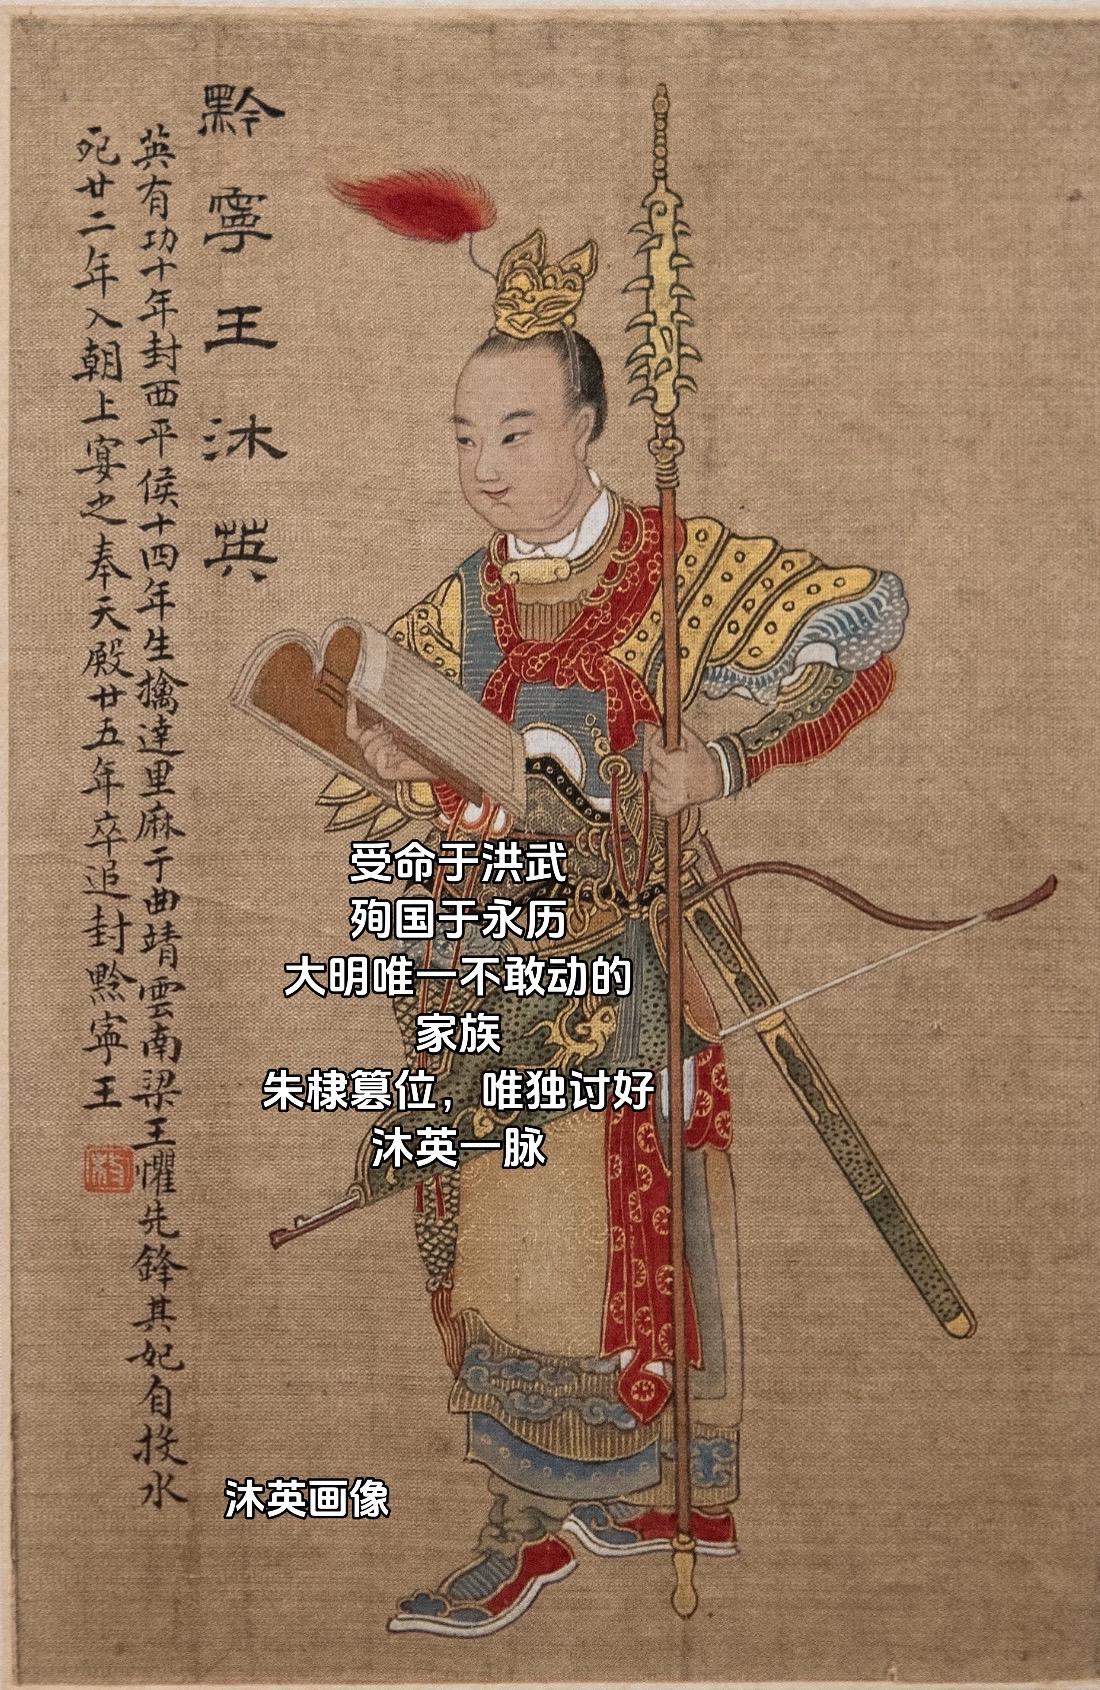 黔寧王沐英
英有功十年封西平侯十四年生擒達里麻于曲靖雲南梁王懼先鋒其妃自投水
死廿二年入朝上宴之奉天殿廿五年卒追封黔寧王
受命于洪武
殉国于永历
大明唯一不敢动的
家族
朱棣篡位，唯独讨好
沐英一脉
沐英画像